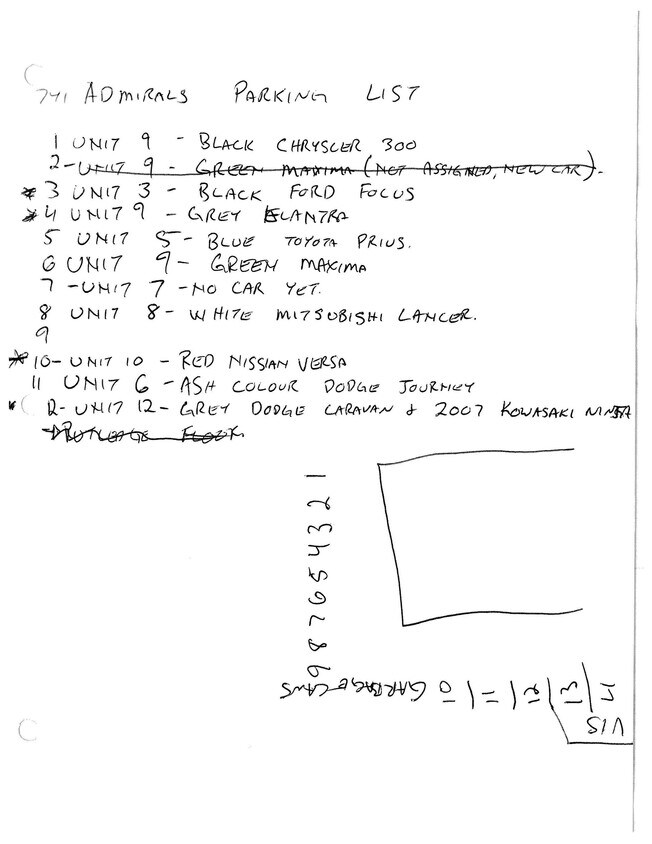 741 ADMIRALS PARKING LIST
1 UNIT 9 - BLACK CHRYSCLER 300
2-UNIT 9 - GREEN MAXIMA (NOT ASSIGNED, NEW CAR).
* 3 UNIT 3 - BLACK FORD FOCUS
* 4 UNIT 9 - GREY ELANTRA
5 UNIT 5- BLUE TOYOTA PRIUS.
6 UNIT 9- GREEN MAXIMA
7 -UNIT 7 -NO CAR YET.
8 UNIT 8- WHITE MITSUBISHI LANCER.
9
* 10- UNIT 10 - RED NISSIAN VERSA
11 UNIT 6 -ASH COLOUR DODGE JOURNEY
* 12- UNIT 12- GREY DODGE CARAVAN & 2007 KOWASAKI NINJA
1 2 3 4 5 6 7 8 9
GARBAGE CANS 10 11 12 13 14
VIS